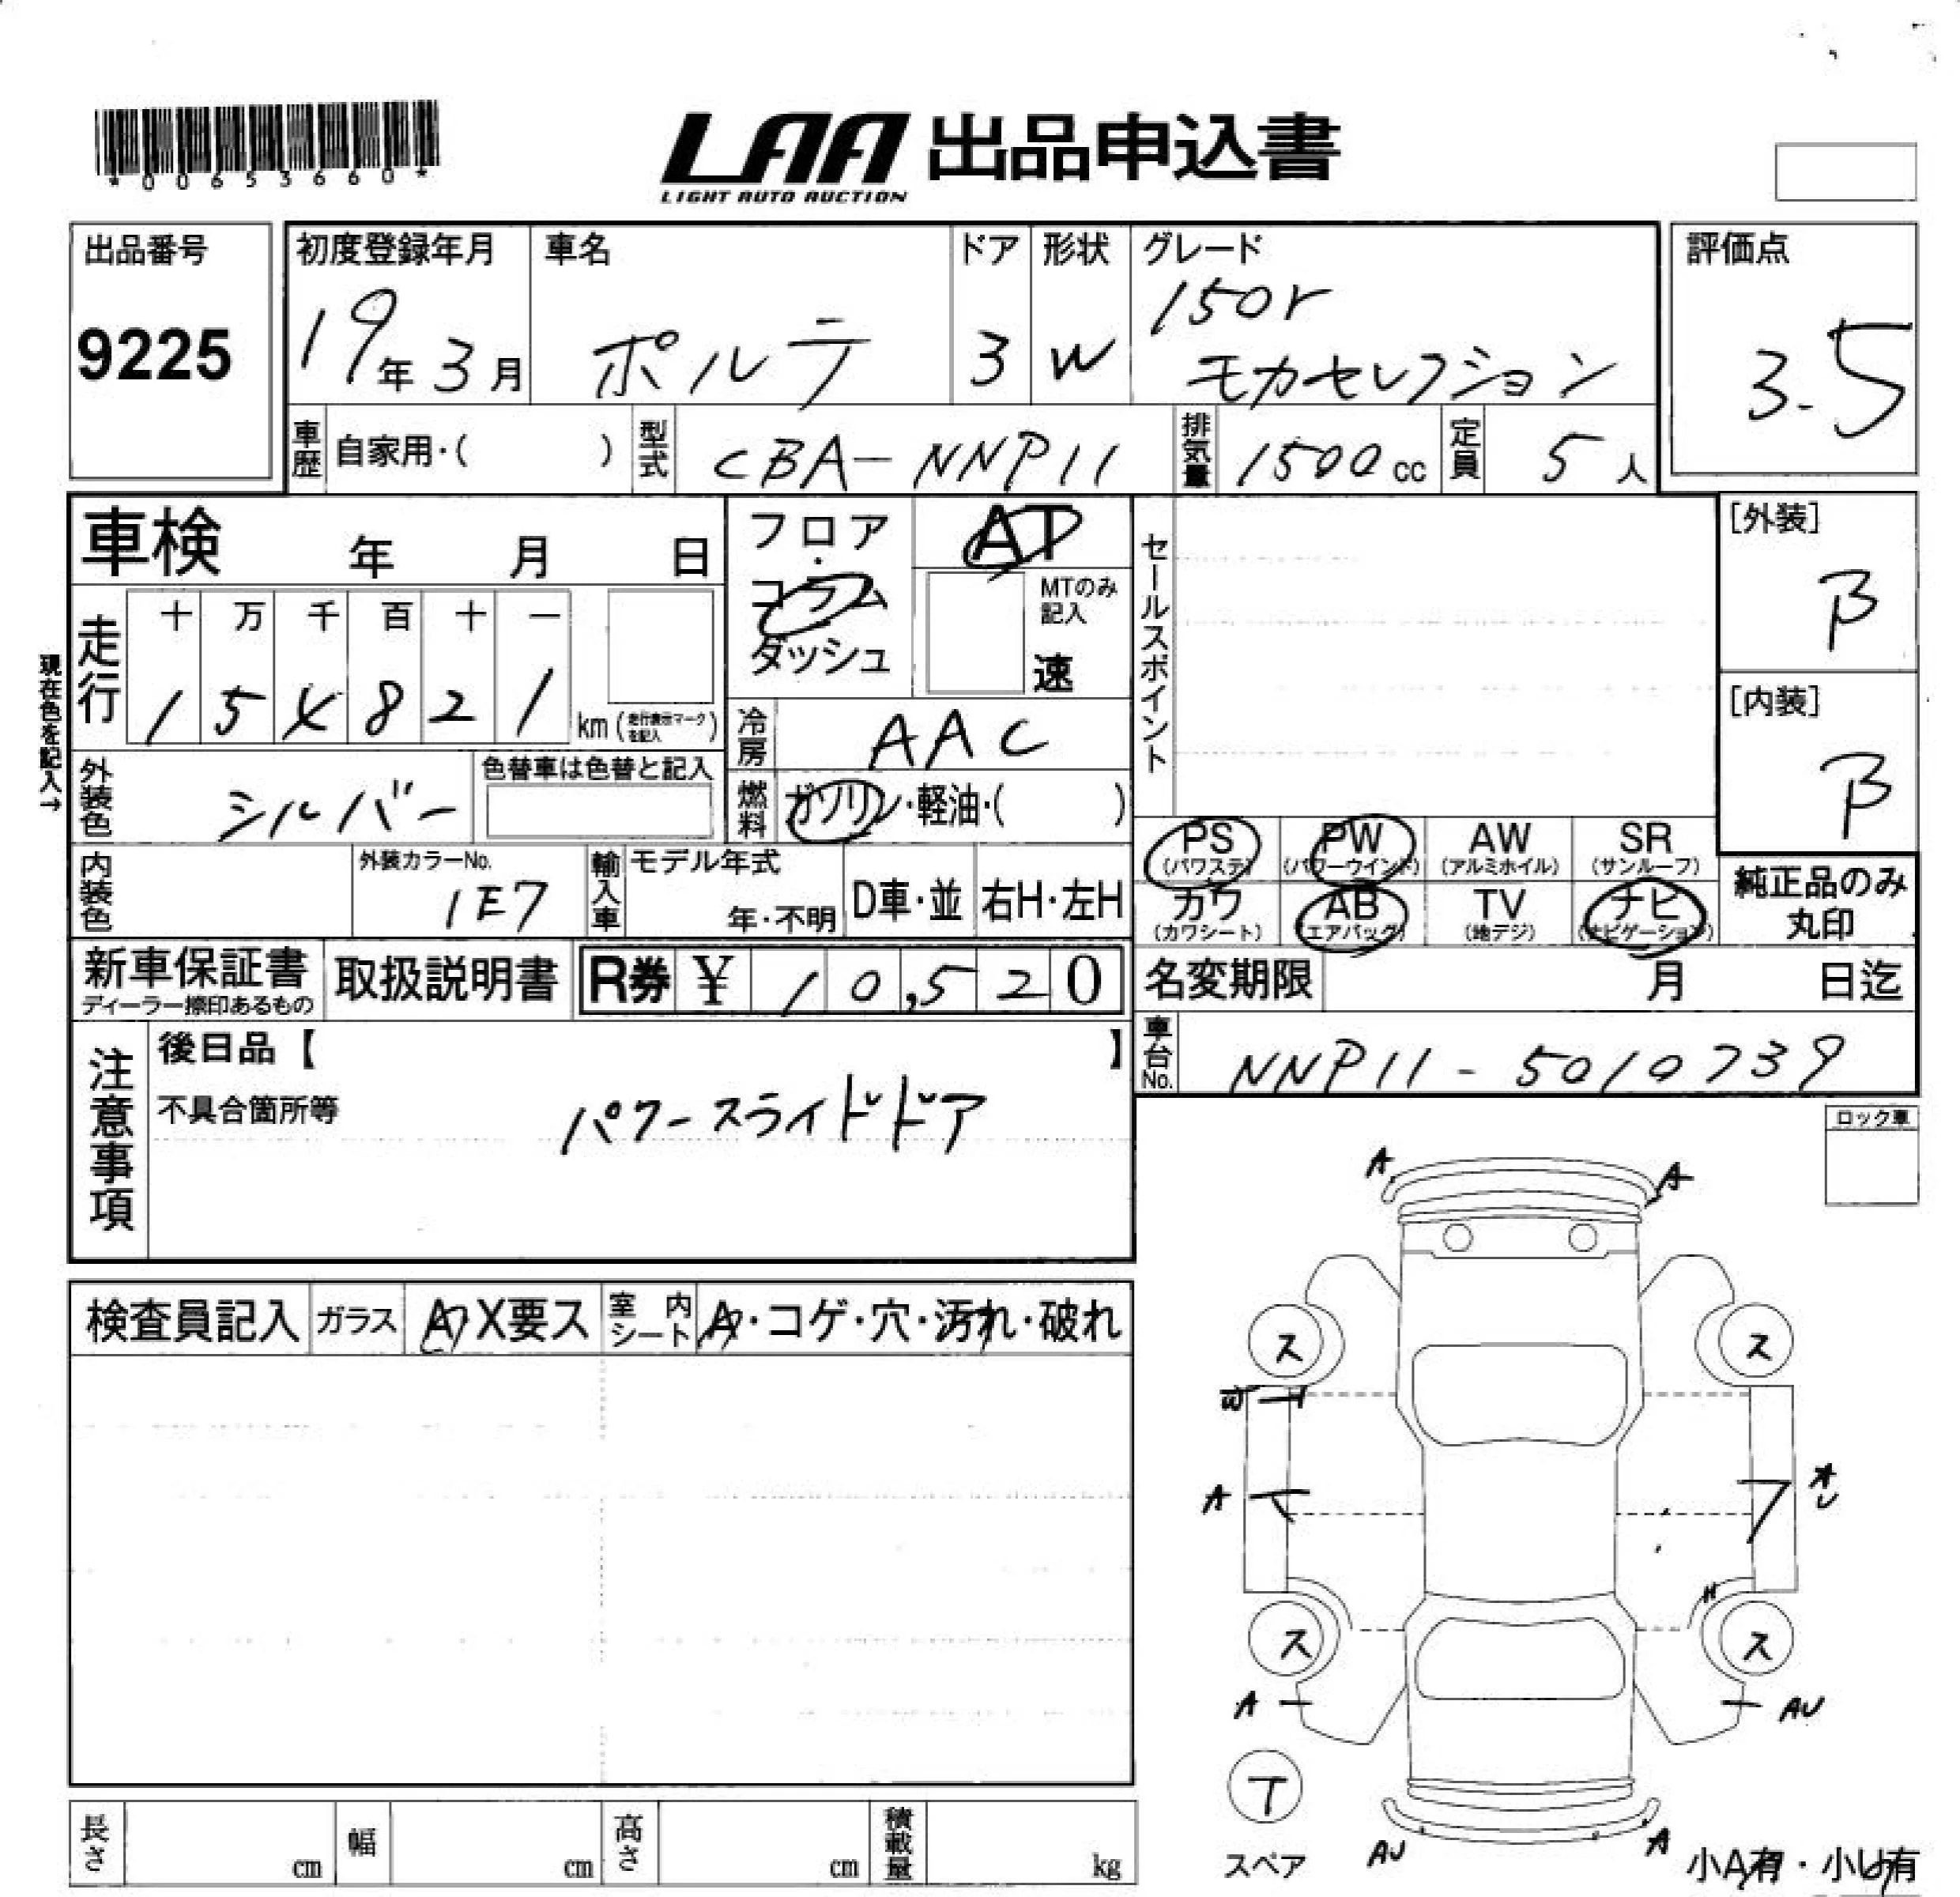 *00653660*
LAA 出品申込書
LIGHT AUTO AUCTION
出品番号
9225
初度登録年月
19年3月
車名
ポルテ
ドア
3
形状
W
グレード
150r
モカセレクション
評価点
3.5
車歴 自家用・( )
型式 CBA-NNP11
排気量 1500cc
定員 5人
車検 年 月 日
フロア・コラム
ダッシュ
AT
MTのみ記入
速
セールスポイント
[外装]
B
[内装]
B
現在色を記入→
走行
十 万 千 百 十 一
1 5 4 8 2 1 km (走行表示マークを記入)
冷房 AAC
外装色 シルバー
色替車は色替と記入
燃料 ガソリン・軽油・( )
PS (パワステ)
PW (パワーウインド)
AW (アルミホイル)
SR (サンルーフ)
カワ (カワシート)
AB (エアバッグ)
TV (地デジ)
ナビ (ナビゲーション)
純正品のみ丸印
内装色
外装カラーNo.
1E7
輸入車
モデル年式
年・不明
D車・並
右H・左H
新車保証書
ディーラー捺印あるもの
取扱説明書
R券 ¥ 10,520
名変期限 月 日迄
車台No. NNP11-5010739
注意事項
後日品【 】
不具合箇所等
パワースライドドア
ロック車
検査員記入
ガラス A X要ス
室内シート A・コゲ・穴・汚れ・破れ
A A
ス ス
W
A
オレ
ス ス
A AU
T
スペア
AU A
小A有・小U有
長さ cm
幅 cm
高さ cm
積載量 kg